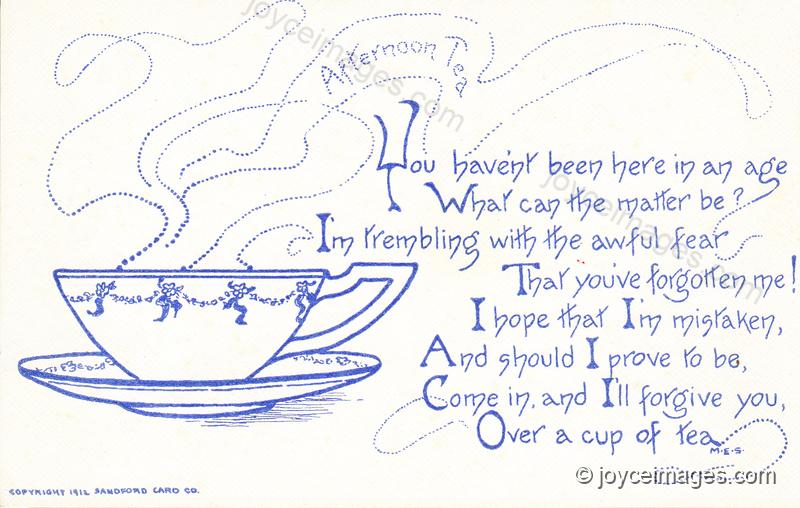 Afternoon Tea
You haven't been here in an age
What can the matter be?
I'm trembling with the awful fear
That you've forgotten me!
I hope that I'm mistaken,
And should I prove to be,
Come in, and I'll forgive you,
Over a cup of tea.
M.E.S.
COPYRIGHT 1912 SANDFORD CARD CO.
© joyceimages.com
joyceimages.com
joyceimages.com